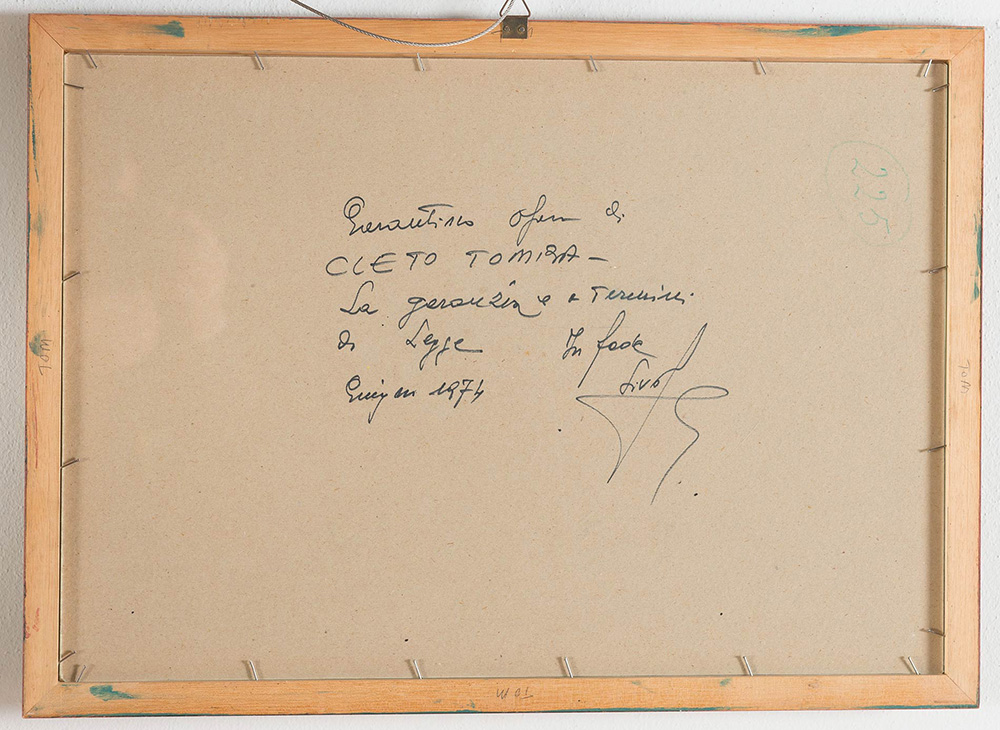 Garantisco opera di
CLETO TOMBA –
La garanzia e a Termini
di Legge In fede
Giugno 1974
225
TOM
TOM
TOM